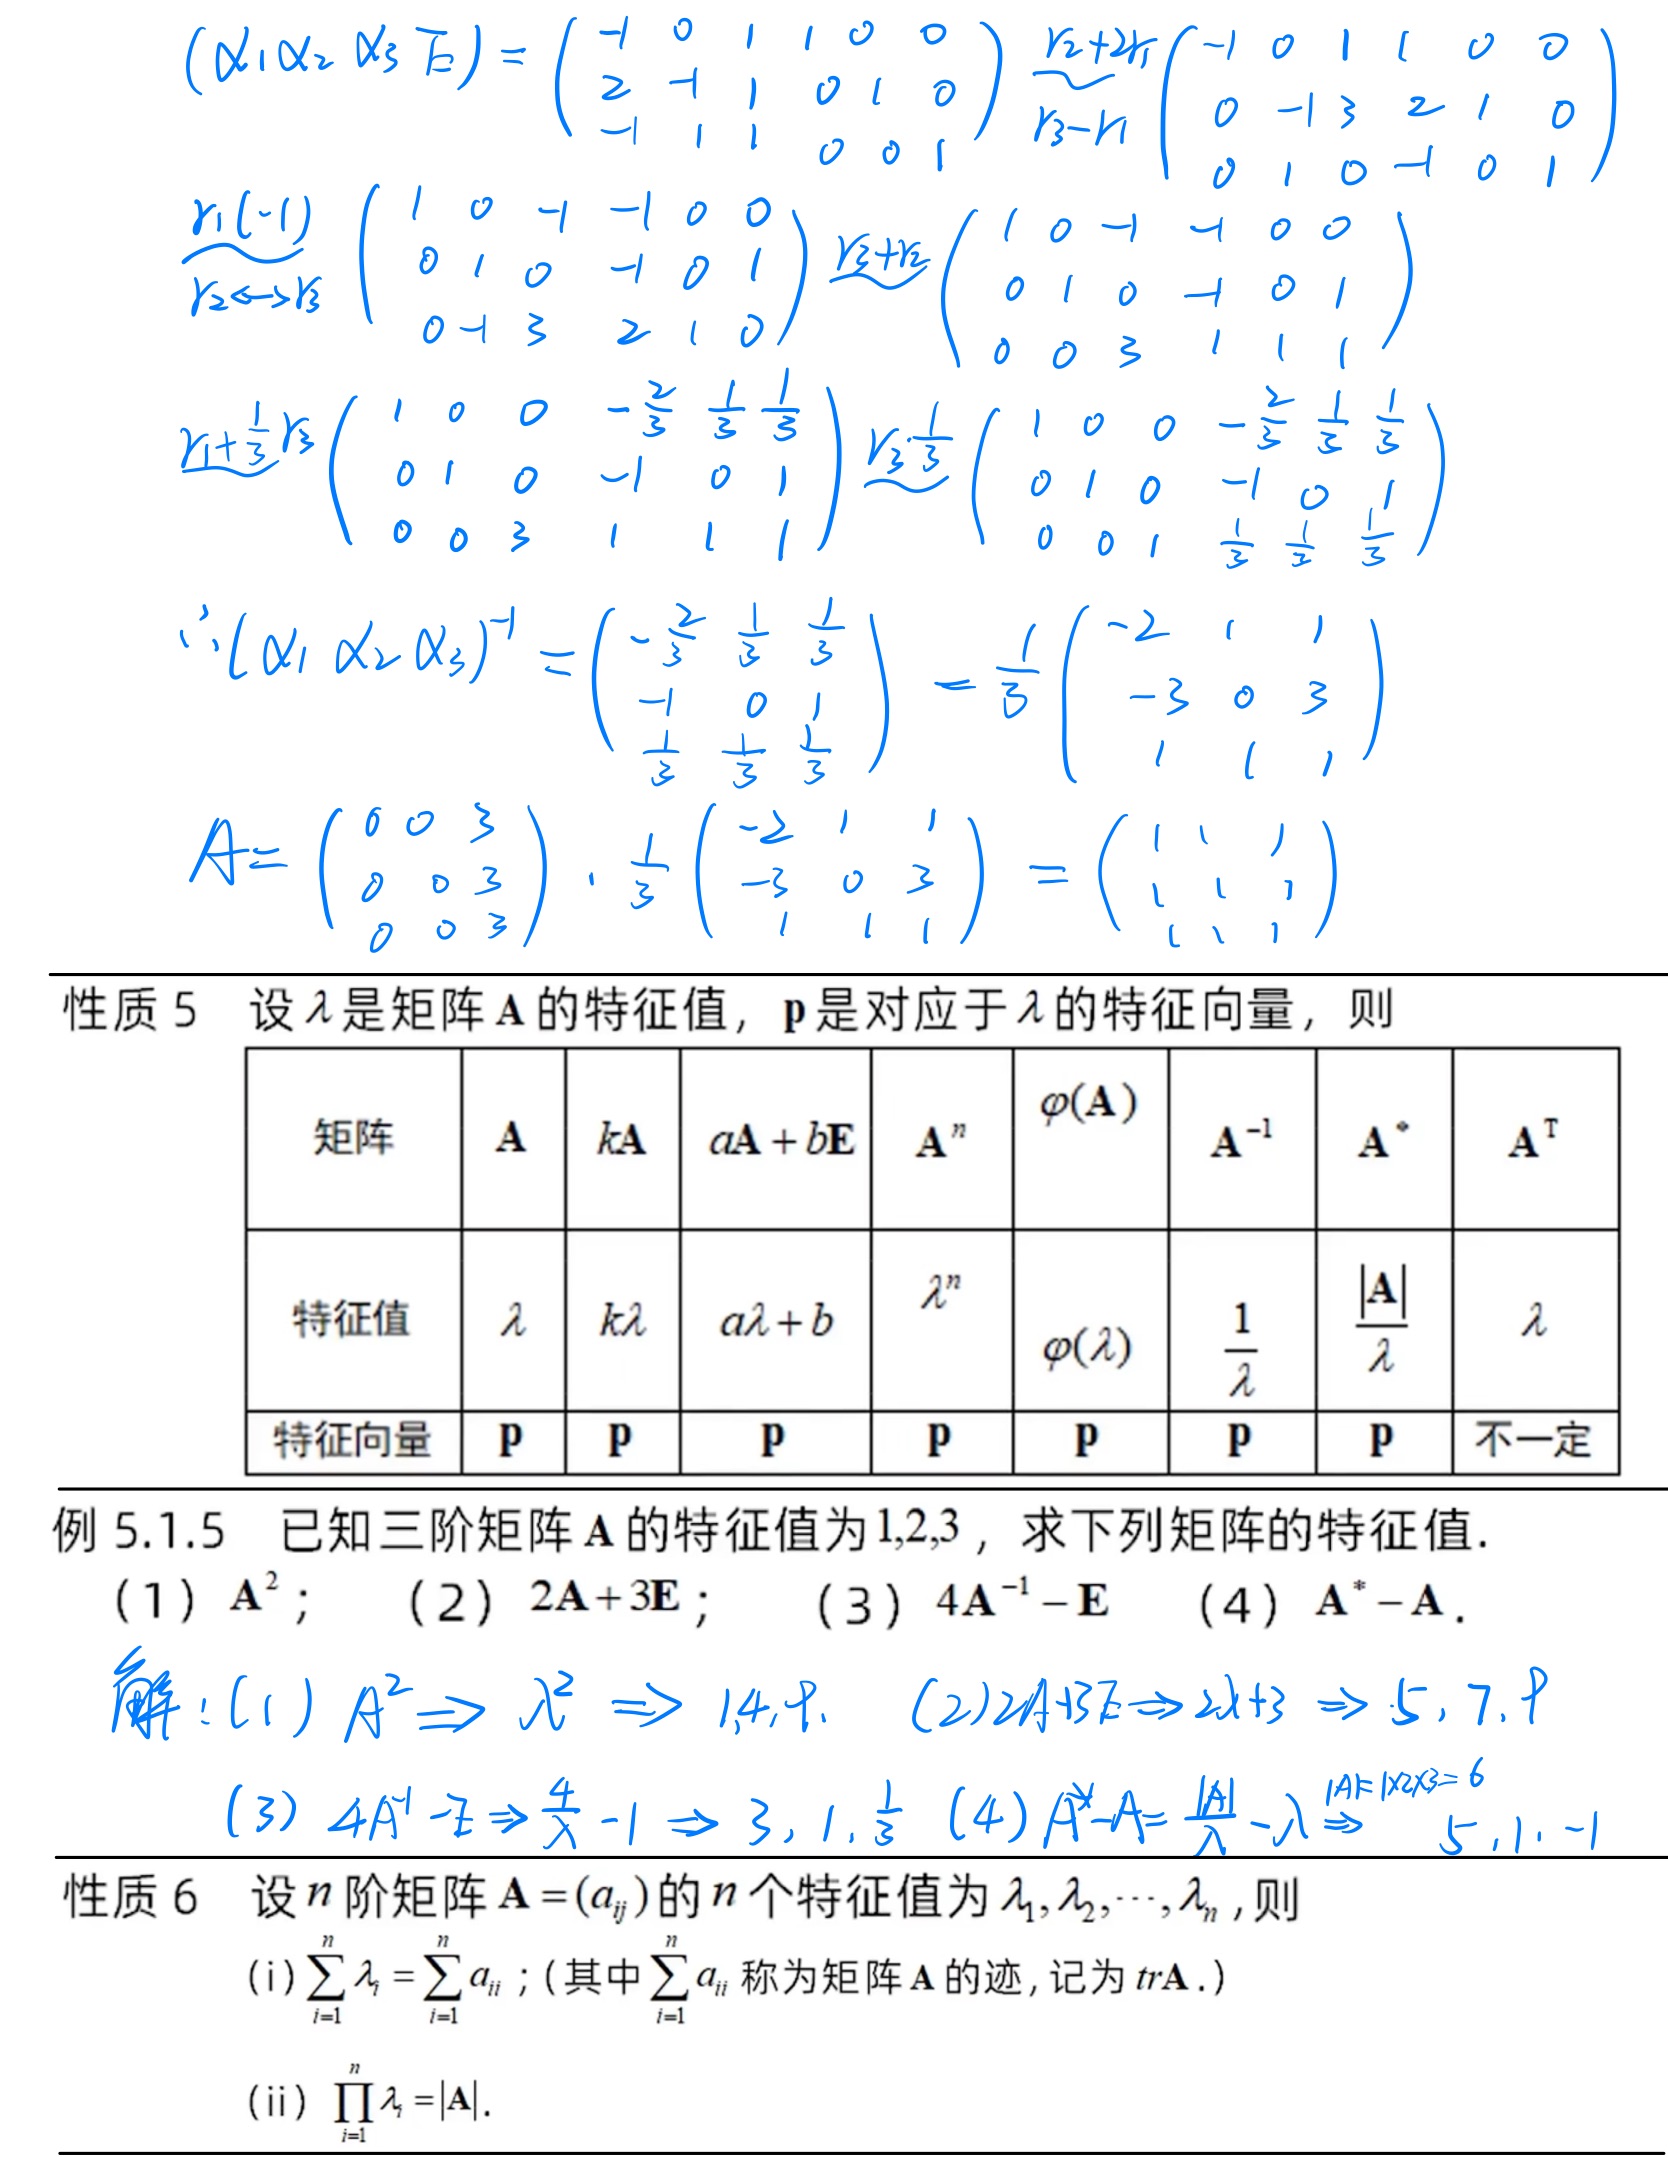 (α₁ α₂ α₃ E) = ( -1 0 1 1 0 0 ; 2 -1 1 0 1 0 ; -1 1 1 0 0 1 ) r₂+2r₁ r₃-r₁ ( -1 0 1 1 0 0 ; 0 -1 3 2 1 0 ; 0 1 0 -1 0 1 )
r₁(-1) r₂↔r₃ ( 1 0 -1 -1 0 0 ; 0 1 0 -1 0 1 ; 0 -1 3 2 1 0 ) r₃+r₂ ( 1 0 -1 -1 0 0 ; 0 1 0 -1 0 1 ; 0 0 3 1 1 1 )
r₁+1/3 r₃ ( 1 0 0 -2/3 1/3 1/3 ; 0 1 0 -1 0 1 ; 0 0 3 1 1 1 ) r₃·1/3 ( 1 0 0 -2/3 1/3 1/3 ; 0 1 0 -1 0 1 ; 0 0 1 1/3 1/3 1/3 )
∴ (α₁ α₂ α₃)⁻¹ = ( -2/3 1/3 1/3 ; -1 0 1 ; 1/3 1/3 1/3 ) = 1/3 ( -2 1 1 ; -3 0 3 ; 1 1 1 )
A = ( 0 0 3 ; 0 0 3 ; 0 0 3 ) · 1/3 ( -2 1 1 ; -3 0 3 ; 1 1 1 ) = ( 1 1 1 ; 1 1 1 ; 1 1 1 )
性质 5 设 λ 是矩阵 A 的特征值, p 是对应于 λ 的特征向量, 则
矩阵 A kA aA+bE Aⁿ φ(A) A⁻¹ A* Aᵀ
特征值 λ kλ aλ+b λⁿ φ(λ) 1/λ |A|/λ λ
特征向量 p p p p p p p 不一定
例 5.1.5 已知三阶矩阵 A 的特征值为 1,2,3, 求下列矩阵的特征值.
(1) A²; (2) 2A+3E; (3) 4A⁻¹-E (4) A*-A.
解:(1) A² ⇒ λ² ⇒ 1,4,9. (2) 2A+3E ⇒ 2λ+3 ⇒ 5, 7, 9
(3) 4A⁻¹-E ⇒ 4/λ -1 ⇒ 3, 1, 1/3 (4) A*-A = |A|/λ - λ ⇒ |A|=1×2×3=6 5, 1, -1
性质 6 设 n 阶矩阵 A=(aᵢⱼ) 的 n 个特征值为 λ₁,λ₂,⋯,λₙ,则
(i) ∑ⁿᵢ₌₁ λᵢ = ∑ⁿᵢ₌₁ aᵢᵢ ;(其中 ∑ⁿᵢ₌₁ aᵢᵢ 称为矩阵 A 的迹,记为 trA.)
(ii) ∏ⁿᵢ₌₁ λᵢ = |A|.